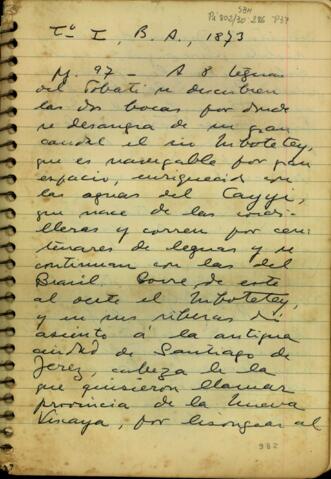 SBH
Pi 802/30 286 P37
Tº I, B. A., 1873
p. 97 - A 8 leguas
del Tobatí se descubren
las dos bocas por donde
se desangra de su gran
caudal el río Mbotetey,
que es navegable por gran
espacio, enriquecido con
las aguas del Cayyi,
que nace de las cordi-
lleras y corren por cen-
tenares de leguas y se
continuan con las del
Brasil. Corre de este
al oeste el Mbotetey,
y en sus riberas dió
asiento á la antigua
ciudad de Santiago de
Jerez, cabeza de la
que quisieron llamar
provincia de la Nueva
Viscaya, por lisongear al
982